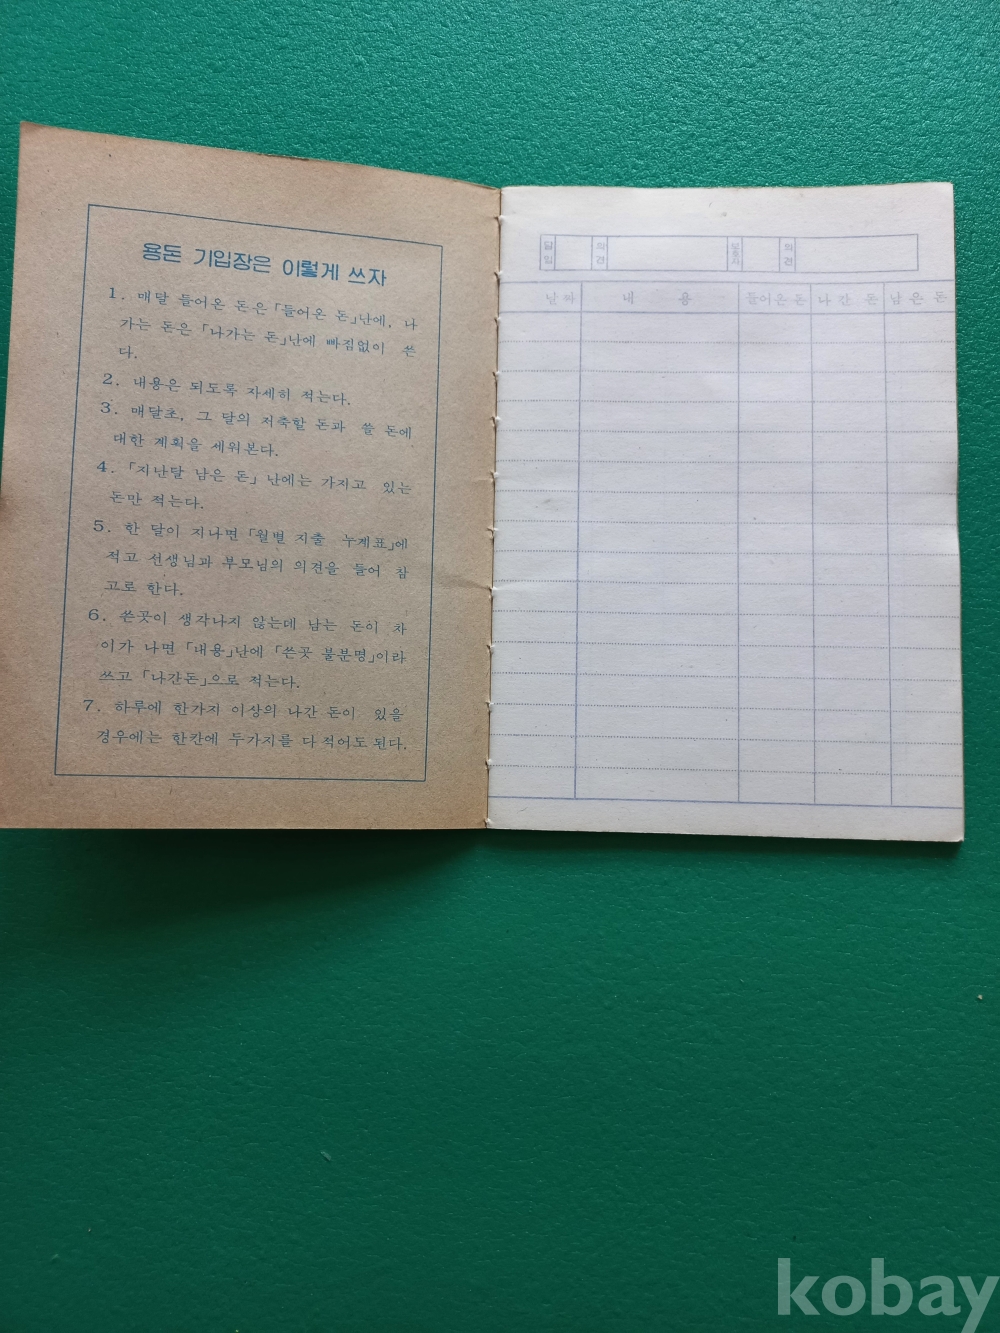 용돈 기입장은 이렇게 쓰자
1. 매달 들어온 돈은「들어온 돈」난에, 나
가는 돈은「나가는 돈」난에 빠짐없이 쓴
다.
2. 내용은 되도록 자세히 적는다.
3. 매달초, 그 달의 저축할 돈과 쓸 돈에
대한 계획을 세워본다.
4.「지난달 남은 돈」난에는 가지고 있는
돈만 적는다.
5. 한 달이 지나면「월별 지출 누계표」에
적고 선생님과 부모님의 의견을 들어 참
고로 한다.
6. 쓴곳이 생각나지 않는데 남는 돈이 차
이가 나면「내용」난에「쓴곳 불분명」이라
쓰고「나간돈」으로 적는다.
7. 하루에 한가지 이상의 나간 돈이 있을
경우에는 한칸에 두가지를 다 적어도 된다.
담임 의견 보호자 의견
날짜 내용 들어온돈 나간 돈 남은돈
kobay